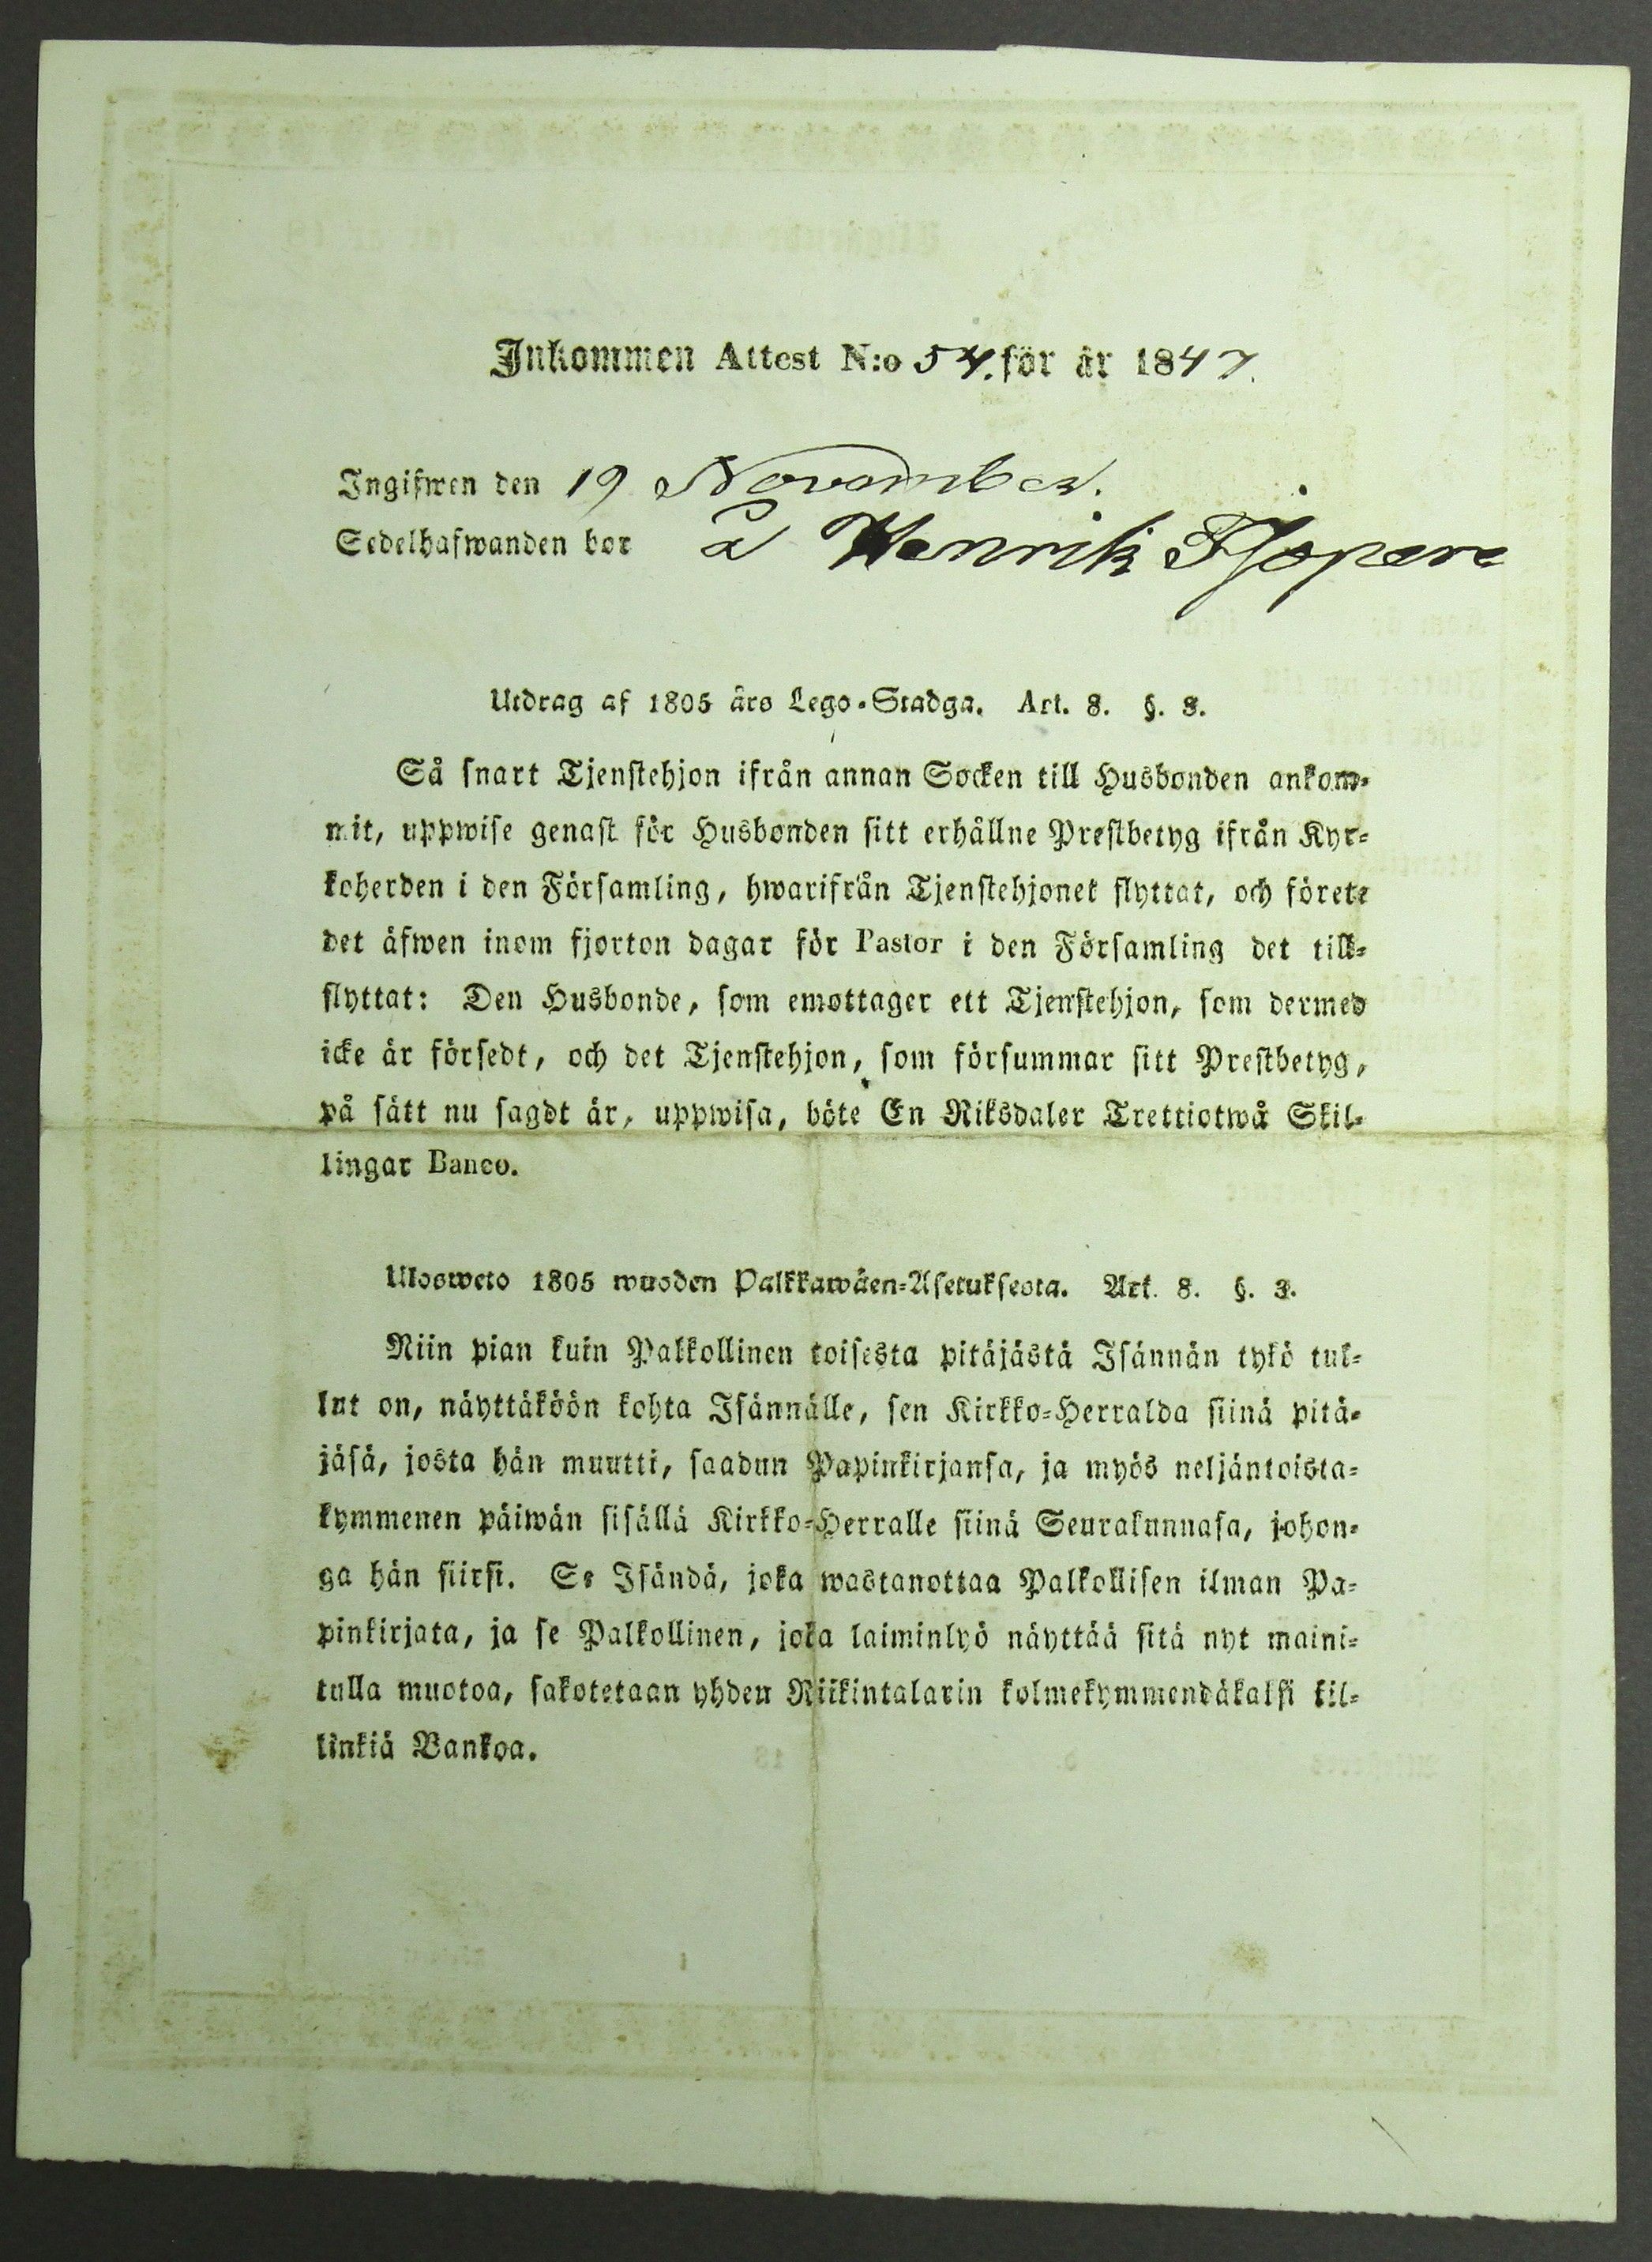 Inkommen Attest N:o 54. för år 1847.
Ingifwen den 19 November.
Sedelhafwanden bor å Henrik
Utdrag af 1805 års Lego-Stadga. Art. 8. §. 3.
Så snart Tjenstehjon ifrån annan Socken till Husbonden ankom-
mit, uppwise genast för Husbonden sitt erhållne Prestbetyg ifrån Kyr-
koherden i den Församling, hwarifrån Tjenstehjonet flyttat, och förete
det äfwen inom fjorton dagar för Pastor i den Församling det till-
flyttat: Den Husbonde, som emottager ett Tjenstehjon, som dermed
icke är försedt, och det Tjenstehjon, som försummar sitt Prestbetyg,
på sätt nu sagdt är, uppwisa, böte En Riksdaler Trettiotwå Skil-
lingar Banco.
Ulosweto 1805 wuoden Palkkawäen-Asetuksesta. Art. 8. §. 3.
Niin pian kuin Palkollinen toisesta pitäjästä Isännän tykö tul-
lut on, näyttäköön kohta Isännälle, sen Kirkko-Herralda siinä pitä-
jäsä, josta hän muutti, saadun Papinkirjansa, ja myös neljäntoista-
kymmenen päiwän sisällä Kirkko-Herralle siinä Seurakunnasa, johon-
ga hän siirsi. Se Isändä, joka wastanottaa Palkollisen ilman Pa-
pinkirjata, ja se Palkollinen, joka laiminlyö näyttää sitä nyt maini-
tulla muotoa, sakotetaan yhden Riikintalarin kolmekymmendäkalsi kil-
linkiä Bankoa.